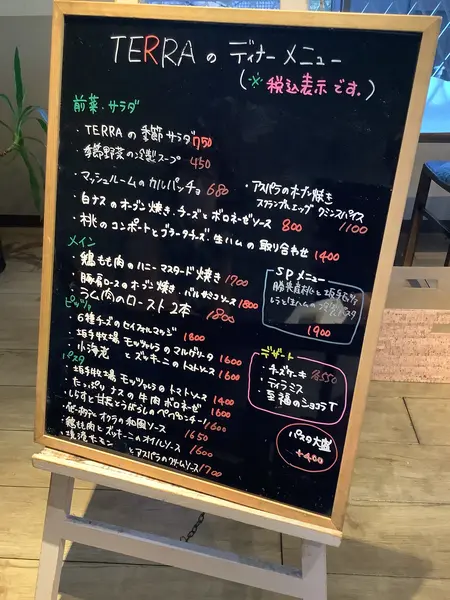 TERRAの ディナーメニュー
(※ 税込表示です。)
前菜・サラダ
・TERRAの季節サラダ 750
季節野菜の冷製スープ 450
・マッシュルームのカルパッチョ 680
・アスパラのオーブン焼き
スクランブルエッグ 1100
・白ナスのオーブン焼き・チーズとボロネーゼソース 800
・桃のコンポートとブラータチーズ・生ハムの取り合わせ 1400
メイン
・鶏もも肉のハニーマスタード焼き 1700
・豚肩ロースのオーブン焼き・バルサミコソース 1800
・ラム肉のロースト 2本 1800
SPメニュー
勝沼産桃と
生ハムの冷製パスタ
1900
ピッツァ
・6種チーズの 1800
・坂手牧場 モッツァレラのマルゲリータ 1600
・小海老とズッキーニのトマトソース 1600
デザート
・チーズケーキ 各550
・ティラミス
・至福のショコラT
パスタ
・坂手牧場 モッツァレラのトマトソース 1400
・たっぷりナスの牛肉ボロネーゼ 1600
・しらすと甘とうがらしのペペロンチーノ 1600
オクラの和風ソース 1650
・鶏もも肉とズッキーニのオイルソース 1600
とアスパラのクリームソース 1700
パスタ大盛
+400